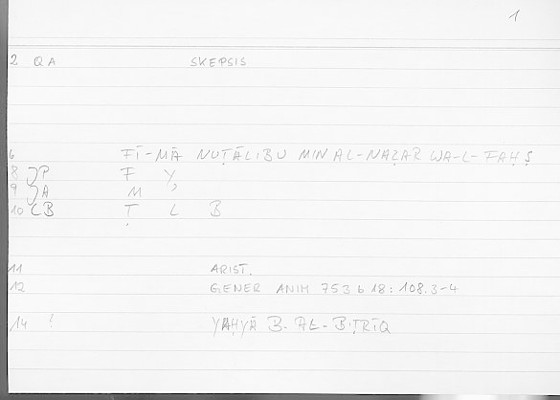 1
2 QA SKEPSIS
6 FĪ-MĀ NUṬĀLIBU MIN AL-NAẒAR WA-L-FAḤṢ
8 JP F Y
9 JA M ʾ
10 LB Ṭ L B
11 ARIST.
12 GENER ANIM 753 b 18: 108.3-4
14 ! YAḤYĀ B. AL-BIṬRĪQ